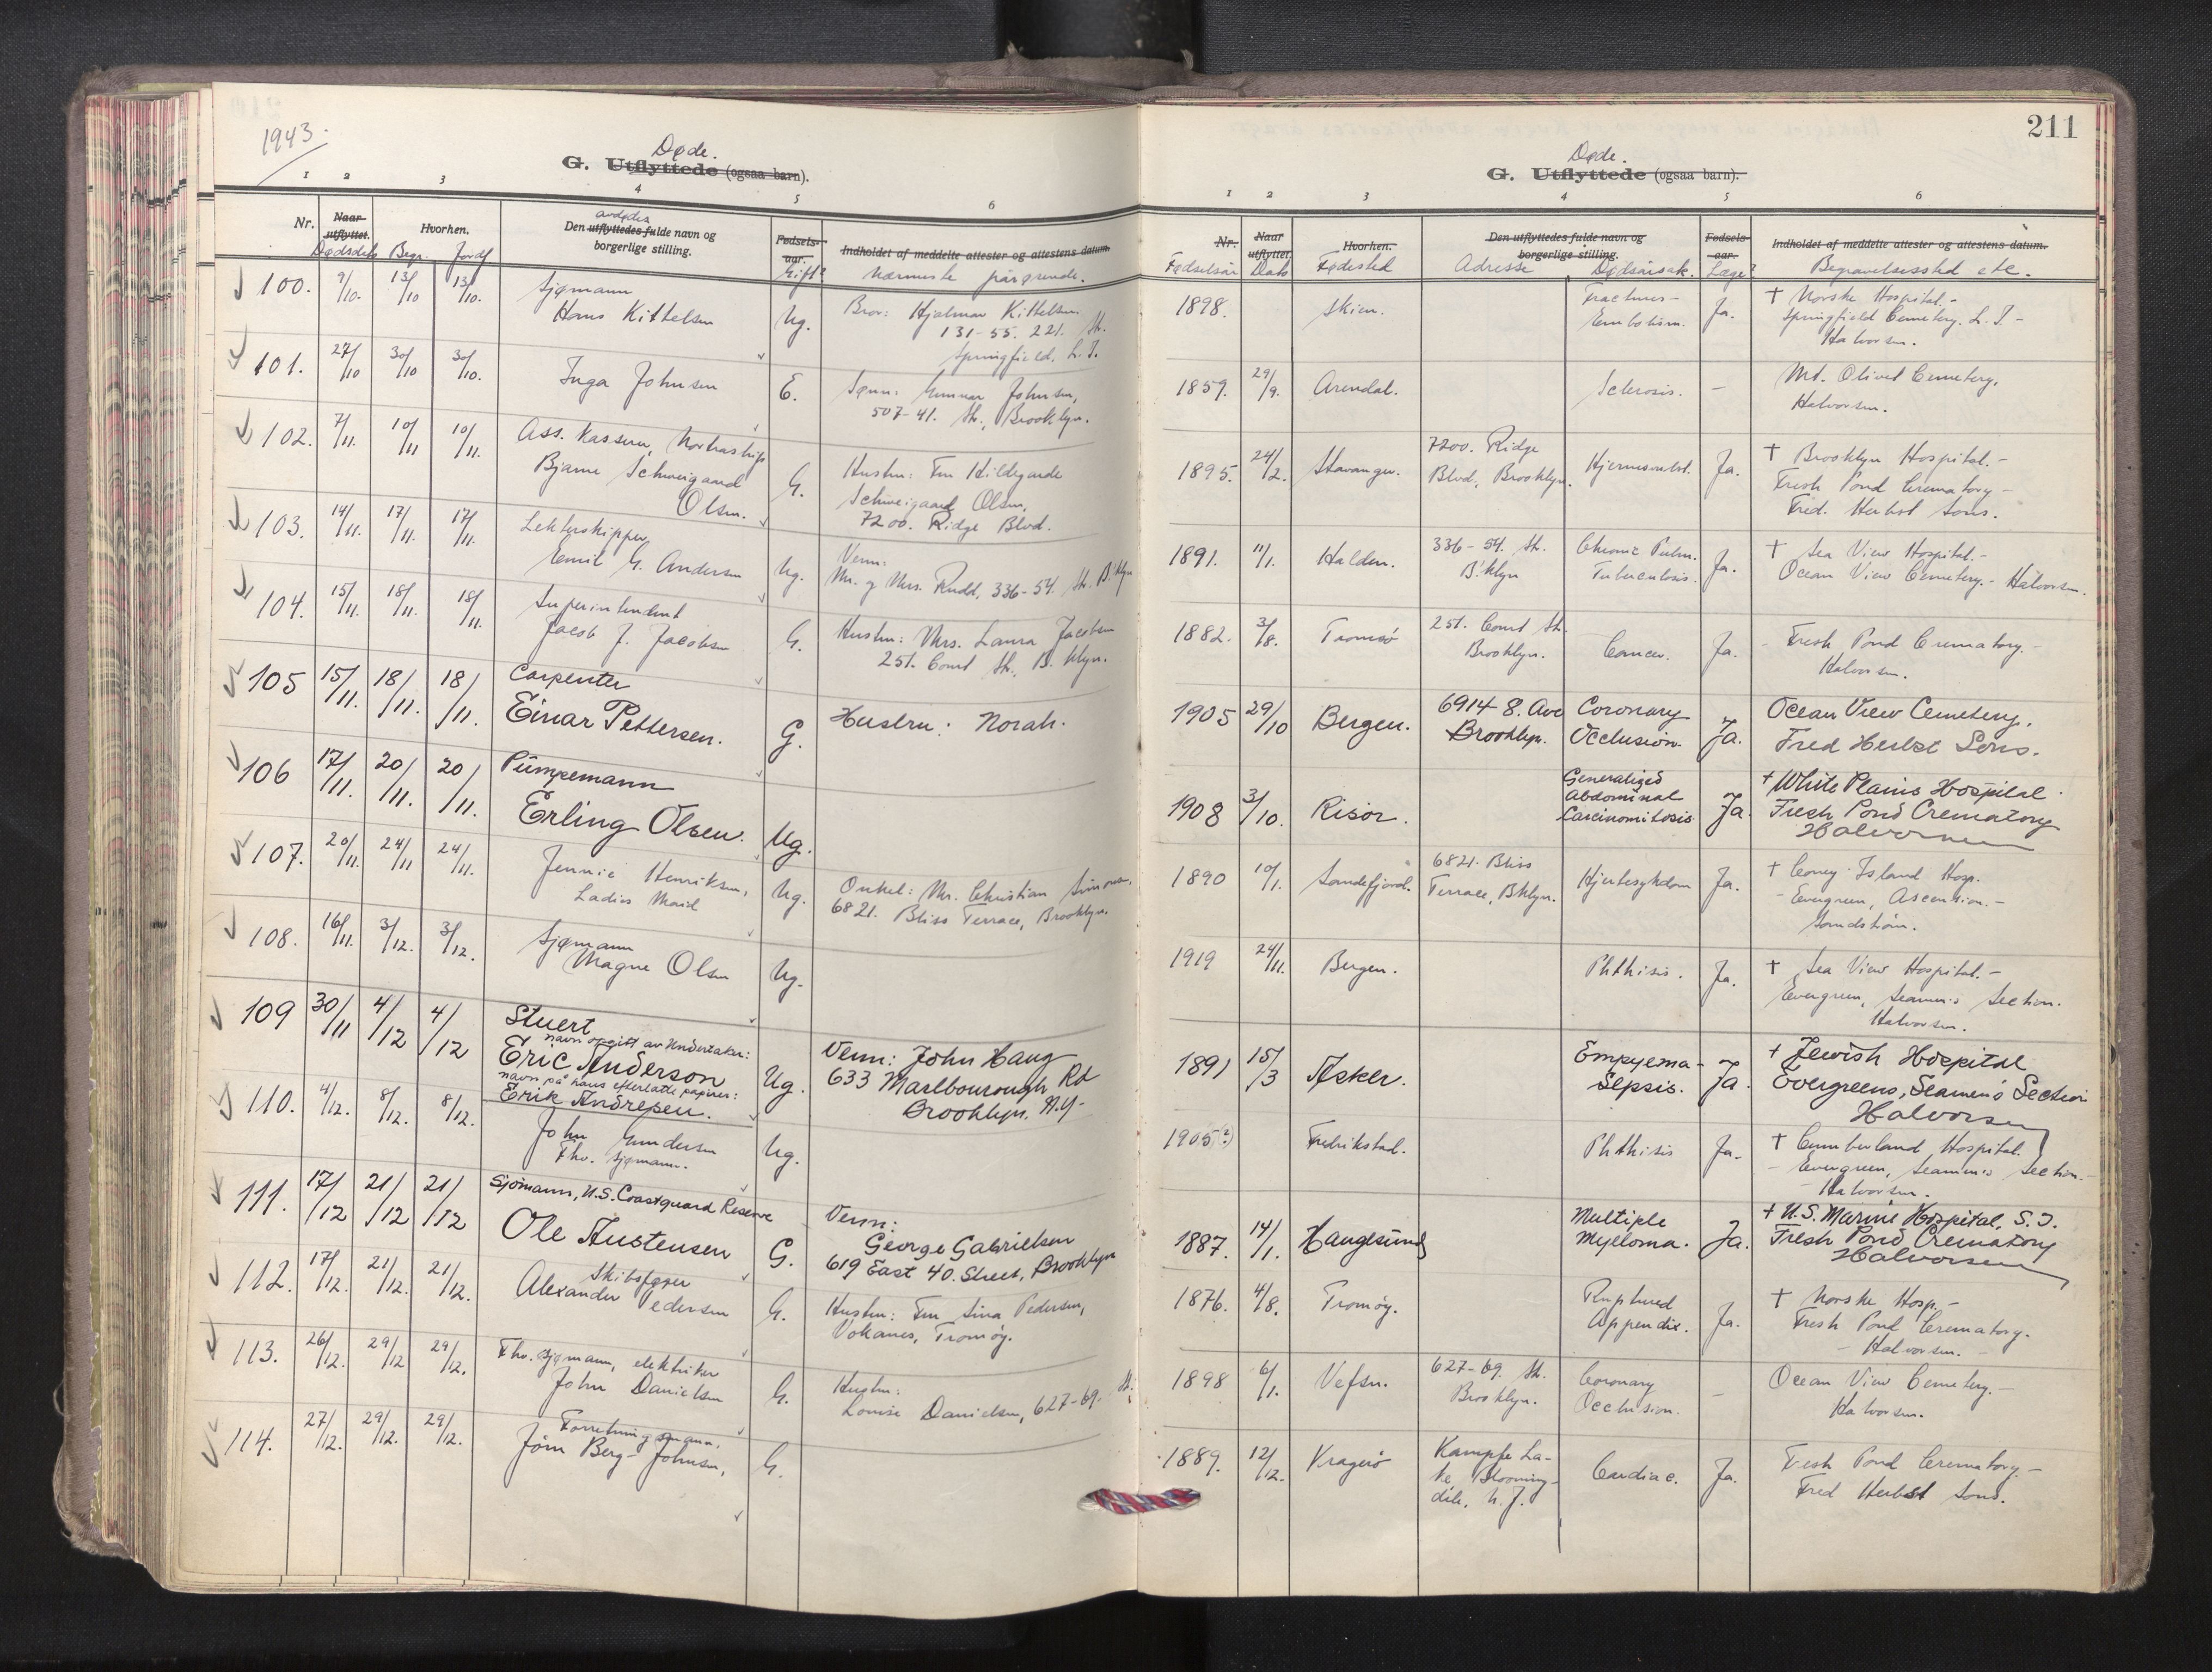 1943.
Døde.
G. Utflyttede (ogsaa barn).
1 2 3 4 5 6
Nr. Naar utflyttet. Hvorhen. Den utflyttedes fulde navn og borgerlige stilling. Fødsels-aar. Indholdet af meddelte attester og attestens datum.
avdødes
Dødsdato Begr. Jordf. Gift? Nærmeste pårørende.
100. 9/10. 13/10 13/10. Sjømann
Hans Kittelsen Ug. Bror: Hjalmar Kittelsen
131-55. 221. St.
Springfield. L.I.
101. 27/10 30/10 30/10. Inga Johnsen E. Sønn: Gunnar Johnsen,
507-41. St., Brooklyn.
102. 7/11. 10/11 10/11. Ass. Kasserer, Nortraship
Bjarne Schweigaard
Olsen. G. Hustru: Fru Hildegarde
Schweigaard Olsen,
7200. Ridge Blvd.
103. 14/11. 17/11. 17/11. Lekterskipper
Emil G. Andersen Ug. Venn:
Mr. og Mrs. Rudd, 336-54. St. B'klyn
104. 15/11. 18/11. 18/11. Superintendent
Jacob J. Jacobsen G. Hustru: Mrs. Laura Jacobsen
251. Court St. B. klyn.
105 15/11. 18/11. 18/11. Carpenter
Einar Pettersen. G. Hustru: Norah.
106 17/11. 20/11. 20/11. Pumpemann
Erling Olsen. Ug.
107. 20/11. 24/11 24/11. Jennie Henriksen,
Ladies Maid Ug. Onkel: Mr. Christian Simonsen,
6821. Bliss Terrace, Brooklyn.
108. 16/11. 3/12. 3/12. Sjømann
Magne Olsen Ug.
109 30/11 4/12 4/12 Stuert
navn opgitt av Undertaker:
Eric Anderson
navn på hans efterlatte papirer:
Erik Andresen. Ug. Venn: John Haug
633 Marlbourough Rd
Brooklyn. N.Y.
110. 4/12. 8/12. 8/12. John Gundersen
Fhv. sjømann. Ug.
111. 17/12 21/12 21/12 Sjömann, U.S. Coastguard Reserve
Ole Austensen G. Venn:
George Gabrielsen
619 East 40. Street, Brooklyn
112. 17/12. 21/12. 21/12. Skibsfører
Alexander Pedersen G. Hustru: Fru Sina Pedersen,
Tromøy.
113. 26/12. 29/12 29/12. Fhv. sjømann, elektriker
John Danielsen G. Hustru:
Louise Danielsen, 627-69. St.
114. 27/12. 29/12. 29/12. Forretningsmann,
Jörn Berg-Johnsen, G.
211
Døde.
G. Utflyttede (ogsaa barn).
1 2 3 4 5 6
Nr. Naar utflyttet. Hvorhen. Den utflyttedes fulde navn og borgerlige stilling. Fødsels-aar. Indholdet af meddelte attester og attestens datum.
Fødselsår Dato Fødested Adresse Dødsårsak. Læge? Begravelsessted etc.
1898. Skien. Fractures-
Embolism. Ja. † Norske Hospital.-
Springfield Cemetery. L.I.-
Halvorsen.
1859. 29/9. Arendal. Sclerosis. - Mt. Olivet Cemetery.
Halvorsen.
1895. 24/2. Stavanger. 7200. Ridge
Blvd, Brooklyn. Ja. † Brooklyn Hospital.-
Fresh Pond Crematory-
Fred. Herbst Sons.
1891. 11/1. Halden. 336-54. St.
B'klyn Chronic Pulm.
Tuberculosis. Ja. † Sea View Hospital.-
Ocean View Cemetery.- Halvorsen.
1882. 3/8. Tromsö 251. Court St.
Brooklyn. Cancer. Ja. Fresh Pond Crematory.-
Halvorsen.
1905 29/10 Bergen. 6914-8. Ave
Brooklyn. Coronary
Occlusion. Ja. Ocean View Cemetery.
Fred Herbst Sons.
1908 3/10. Risör. Generalized
Abdominal
Carcinomitosis Ja. † White Plains Hospital.
Fresh Pond Crematory
Halvorsen
1890 10/1. Sandefjord. 6821. Bliss
Terrace, Bklyn. Hjertesykdom Ja. † Coney Island Hosp.
- Evergreen, Ascension.-
Sandström.
1919 24/11. Bergen. Phthisis. Ja. † Sea View Hospital.-
Evergreen, Seamen's Section.
Halvorsen.
1891 15/3 Asker. Empyema-
Sepsis. Ja. † Jewish Hospital
Evergreens, Seamen's Section
Halvorsen
1905(?) Fredrikstad. Phthisis Ja. † Cumberland Hospital.
- Evergreen, Seamen's Section.-
Halvorsen.
1887. 14/1. Haugesund Multiple
Myeloma. Ja. † U.S. Marine Hospital, S.I.
Fresh Pond Crematory
Halvorsen
1876. 4/8. Tromøy. Ruptured
Appendix. Ja. † Norske Hosp.-
Fresh Pond Crematory.
- Halvorsen. -
1898 6/1. Vefsn. 627-69. St.
Brooklyn. Coronary
Occlusion. - Ocean View Cemetery.-
Halvorsen.
1889. 12/12. Kragerö Kampfe La-
ke, Blooming-
dale, N.J. Cardiac. Ja. Fresh Pond Crematory.-
Fred Herbst Sons.